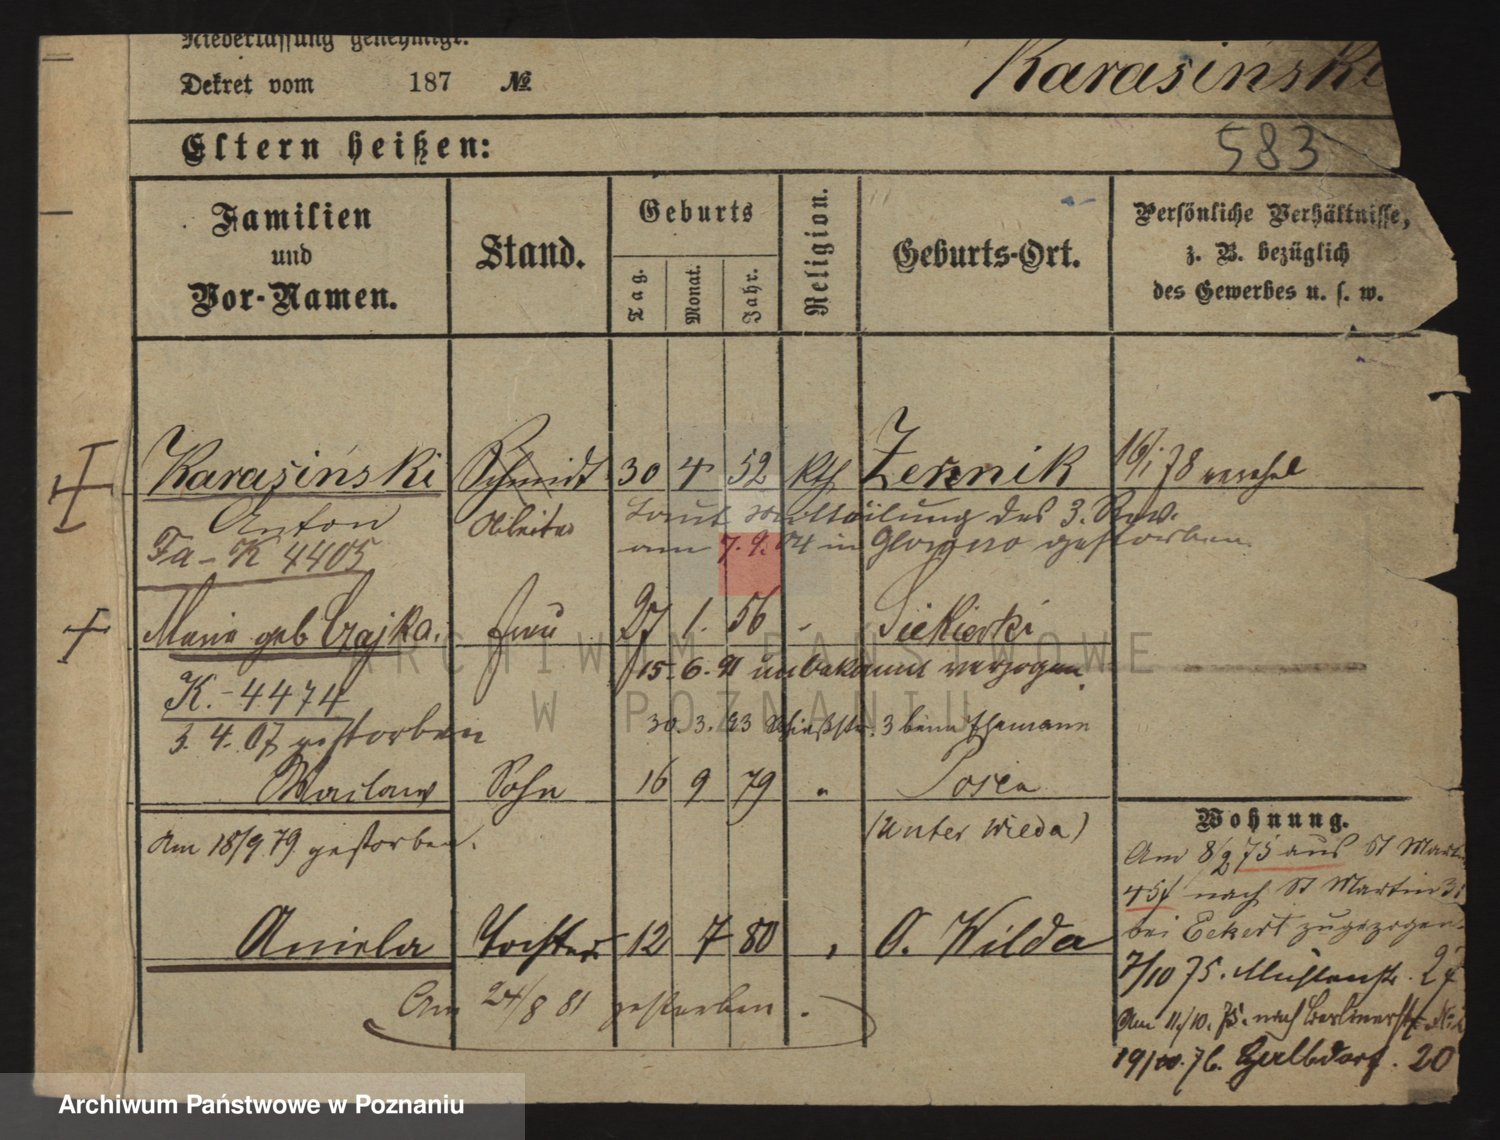 Niederlassung genehmigt.
Karasiński
Dekret vom 187 №
583
Eltern heißen:
Familien und Vor-Namen.
Stand.
Geburts
Tag.
Monat.
Jahr.
Religion.
Geburts-Ort.
Persönliche Verhältnisse,
z. B. bezüglich
des Gewerbes u. s. w.
Karasiński Schmidt 30 4 52 kth Zernik 16/1 78 verehel
Anton Arbeiter Laut Mittheilung des 3. Rev.
Fa - K 4405 am 7. 9. 04 in Glowno gestorben
Maria geb Czajka. Frau 27 1. 56 Siekierki
15. 6. 91 unbekannt verzogen
K. - 4474
30. 3. 93 3 beim Ehemann
3. 4. 07 gestorben
Waclaw Sohn 16 9 79 " Posen
(Unter Wieda)
Am 18/9 79 gestorben.
Wohnung.
Am 8/2 75 aus St Mart
45f nach St Martin
bei Eckert zugezogen
Aniela Tochter 12 7 80 " O. Wilda
7/10 75. Mühlenstr. 27
Am 24/8 81 gestorben.
Am 11/10. 75. nach Berlinerstr
19/10. 76. 20
ARCHIWUM PAŃSTWOWE
W POZNANIU
Archiwum Państwowe w Poznaniu